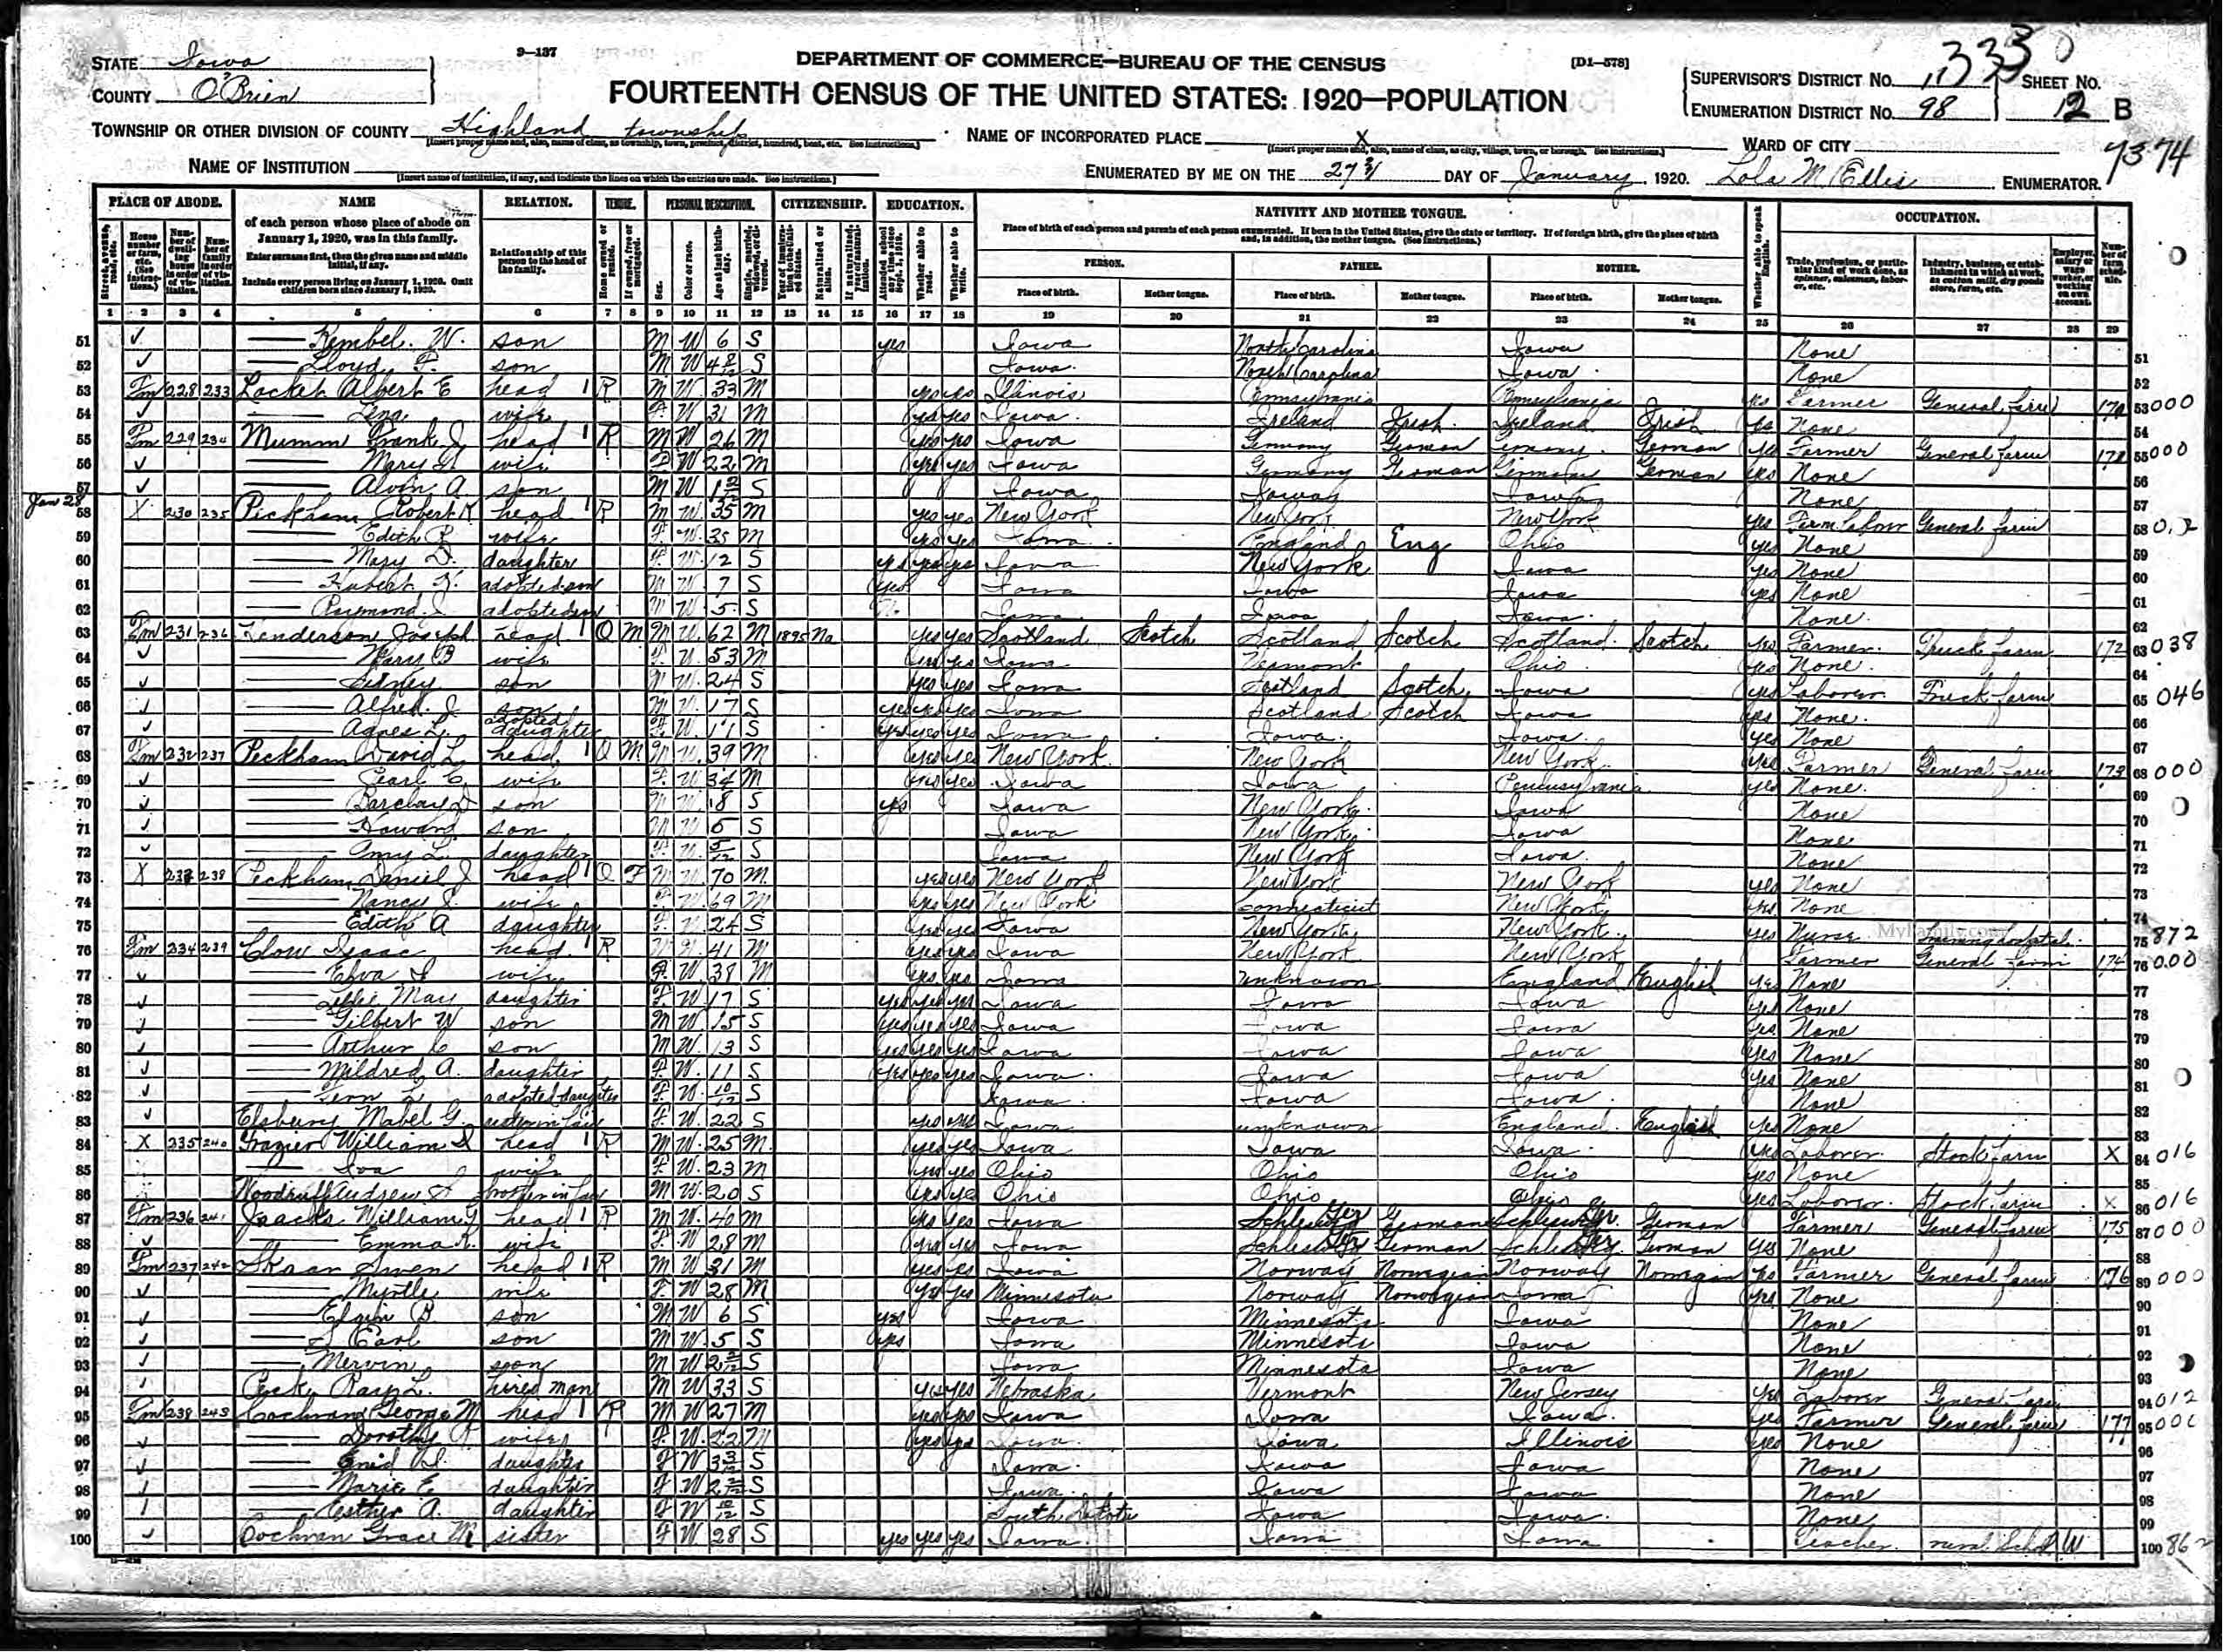 9—137
DEPARTMENT OF COMMERCE—BUREAU OF THE CENSUS
[D1—578]
STATE Iowa
COUNTY O'Brien
FOURTEENTH CENSUS OF THE UNITED STATES: 1920—POPULATION
SUPERVISOR'S DISTRICT No. SHEET No.
ENUMERATION DISTRICT No. 98 12 B
TOWNSHIP OR OTHER DIVISION OF COUNTY Highland township NAME OF INCORPORATED PLACE X WARD OF CITY
7374
NAME OF INSTITUTION ENUMERATED BY ME ON THE 27 DAY OF January, 1920. Lola M Ellis ENUMERATOR.
PLACE OF ABODE. NAME RELATION. TENURE. PERSONAL DESCRIPTION. CITIZENSHIP. EDUCATION. NATIVITY AND MOTHER TONGUE. OCCUPATION.
of each person whose place of abode on January 1, 1920, was in this family.
Enter surname first, then the given name and middle initial, if any.
Include every person living on January 1, 1920. Omit children born since January 1, 1920.
Relationship of this person to the head of the family.
Place of birth of each person and parents of each person enumerated. If born in the United States, give the state or territory. If of foreign birth, give the place of birth and, in addition, the mother tongue. (See Instructions.)
PERSON. FATHER. MOTHER.
Place of birth. Mother tongue. Place of birth. Mother tongue. Place of birth. Mother tongue.
1 2 3 4 5 6 7 8 9 10 11 12 13 14 15 16 17 18 19 20 21 22 23 24 25 26 27 28 29
51 Kembel. W. son M W 6 S yes Iowa North Carolina Iowa None
52 Lloyd F. son M W 4 8/12 S Iowa North Carolina Iowa None
53 Fm 228 233 Locket Albert E head 1 R M W 33 M yes yes Illinois Pennsylvania Pennsylvania yes Farmer General farm 170
54 Lena wife F W 31 M yes yes Iowa Ireland Irish Ireland Irish yes None
55 Fm 229 234 Mumm Frank J head 1 R M W 26 M yes yes Iowa Germany German Germany German yes Farmer General farm 171
56 Mary wife F W 22 M yes yes Iowa Germany German Germany German yes None
57 Alvin A. son M W S Iowa Iowa Iowa None
Jan 28
58 X 230 235 Peckham Robert K head 1 R M W 35 M yes yes New York New York New York yes Farm Laborer General farm
59 Edith wife F W 35 M yes yes Iowa England Eng Ohio yes None
60 Mary D. daughter F W 12 S yes yes yes Iowa New York Iowa yes None
61 Hubert adopted son M W 7 S yes Iowa Iowa Iowa yes None
62 Raymond J adopted son M W 5 S Iowa Iowa Iowa None
63 Fm 231 236 Henderson Joseph head 1 O M M W 62 M 1895 Na yes yes Scotland Scotch Scotland Scotch Scotland Scotch yes Farmer Truck farm 172 038
64 Mary B wife F W 53 M yes yes Iowa Vermont Ohio yes None
65 Sidney son M W 24 S yes yes Iowa Scotland Scotch Iowa yes Laborer Truck farm 046
66 Alfred J son M W 17 S yes yes yes Iowa Scotland Scotch Iowa yes None
67 Agnes L. adopted daughter F W 11 S yes yes yes Iowa Iowa Iowa yes None
68 Fm 232 237 Peckham David L head 1 O M M W 39 M yes yes New York New York New York yes Farmer General farm 173 000
69 Pearl C. wife F W 34 M yes yes Iowa Iowa Pennsylvania yes None
70 Barclay D son M W 8 S yes Iowa New York Iowa None
71 Howard son M W 5 S Iowa New York Iowa None
72 Amy L. daughter F W 5/12 S Iowa New York Iowa None
73 X 233 238 Peckham Daniel J head 1 O F M W 70 M yes yes New York New York New York yes None
74 Nancy wife F W 69 M yes yes New York Connecticut New York yes None
75 Edith A daughter F W 24 S yes yes Iowa New York New York yes Nurse 872
MyFamily.com
76 Fm 234 239 Clow Isaac head 1 R M W 41 M yes yes Iowa New York New York Farmer General farm 174 000
77 Elva wife F W 38 M yes yes Iowa unknown England English yes None
78 May daughter F W 17 S yes yes yes Iowa Iowa Iowa yes None
79 Gilbert W son M W 15 S yes yes yes Iowa Iowa Iowa yes None
80 Arthur C son M W 13 S yes yes yes Iowa Iowa Iowa yes None
81 Mildred A. daughter F W 11 S yes yes yes Iowa Iowa Iowa yes None
82 adopted daughter F W 10/12 S Iowa Iowa Iowa None
83 Elsbury Mabel G. sister in law F W 22 S yes yes Iowa unknown England English yes None
84 X 235 240 Frazier William head 1 R M W 25 M yes yes Iowa Iowa Iowa yes Laborer Stock farm X 016
85 Iva wife F W 23 M yes yes Ohio Ohio Ohio yes None
86 Woodruff Andrew brother in law M W 20 S yes yes Ohio Ohio Ohio yes Laborer Stock farm X 016
87 Fm 236 241 Jaacks William head 1 R M W 40 M yes yes Iowa Schleswig Ger German Schleswig Ger German Farmer General farm 175 000
88 Emma K. wife F W 28 M yes yes Iowa Schleswig Ger German Schleswig Ger German yes None
89 Fm 237 242 Skaar Swen head 1 R M W 31 M yes yes Iowa Norway Norwegian Norway Norwegian yes Farmer General farm 176 000
90 Myrtle wife F W 28 M yes yes Minnesota Norway Norwegian Iowa yes None
91 Elgin B. son M W 6 S yes Iowa Minnesota Iowa None
92 Earl son M W 5 S yes Iowa Minnesota Iowa None
93 Mervin son M W S Iowa Minnesota Iowa None
94 Peck Ray L. hired man M W 33 S yes yes Nebraska Vermont New Jersey yes Laborer General farm 012
95 Fm 238 243 Cochran George M head 1 R M W 27 M yes yes Iowa Iowa Iowa yes Farmer General farm 177
96 Dorothy wife F W 22 M yes yes Iowa Iowa Illinois yes None
97 Enid daughter F W S Iowa Iowa Iowa None
98 Marie E daughter F W S Iowa Iowa Iowa None
99 Esther A. daughter F W 10/12 S South Dakota Iowa Iowa None
100 Cochran Grace M sister F W 28 S yes yes yes Iowa Iowa Iowa Teacher rural School W